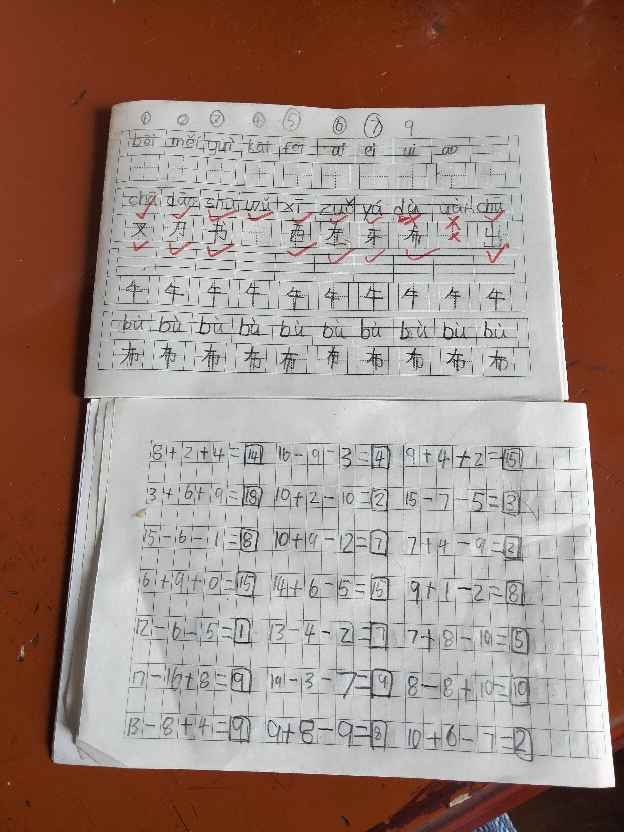 ① ② ③ ④ ⑤ ⑥ ⑦ 9
bēi měi guì tái fēi ai ei ui ao
chā dāo shū wǔ xī zuǒ yá dù chū
叉 刀 书 西 左 牙 布 出
牛 牛 牛 牛 牛 牛 牛 牛 牛 牛
bù bù bù bù bù bù bù bù bù bù
布 布 布 布 布 布 布 布 布 布
8+2+4=14 16-9-3=4 9+4+2=15
3+6+9=18 10+2-10=2 15-7-5=3
15-6-1=8 10+9-12=7 7+4-9=2
6+9+0=15 14+6-5=15 9+1-2=8
12-6-5=1 13-4-2=7 7+8-10=5
17-16+8=9 19-3-7=9 8-8+10=10
13-8+4=9 9+8-9=8 10+6-7=2